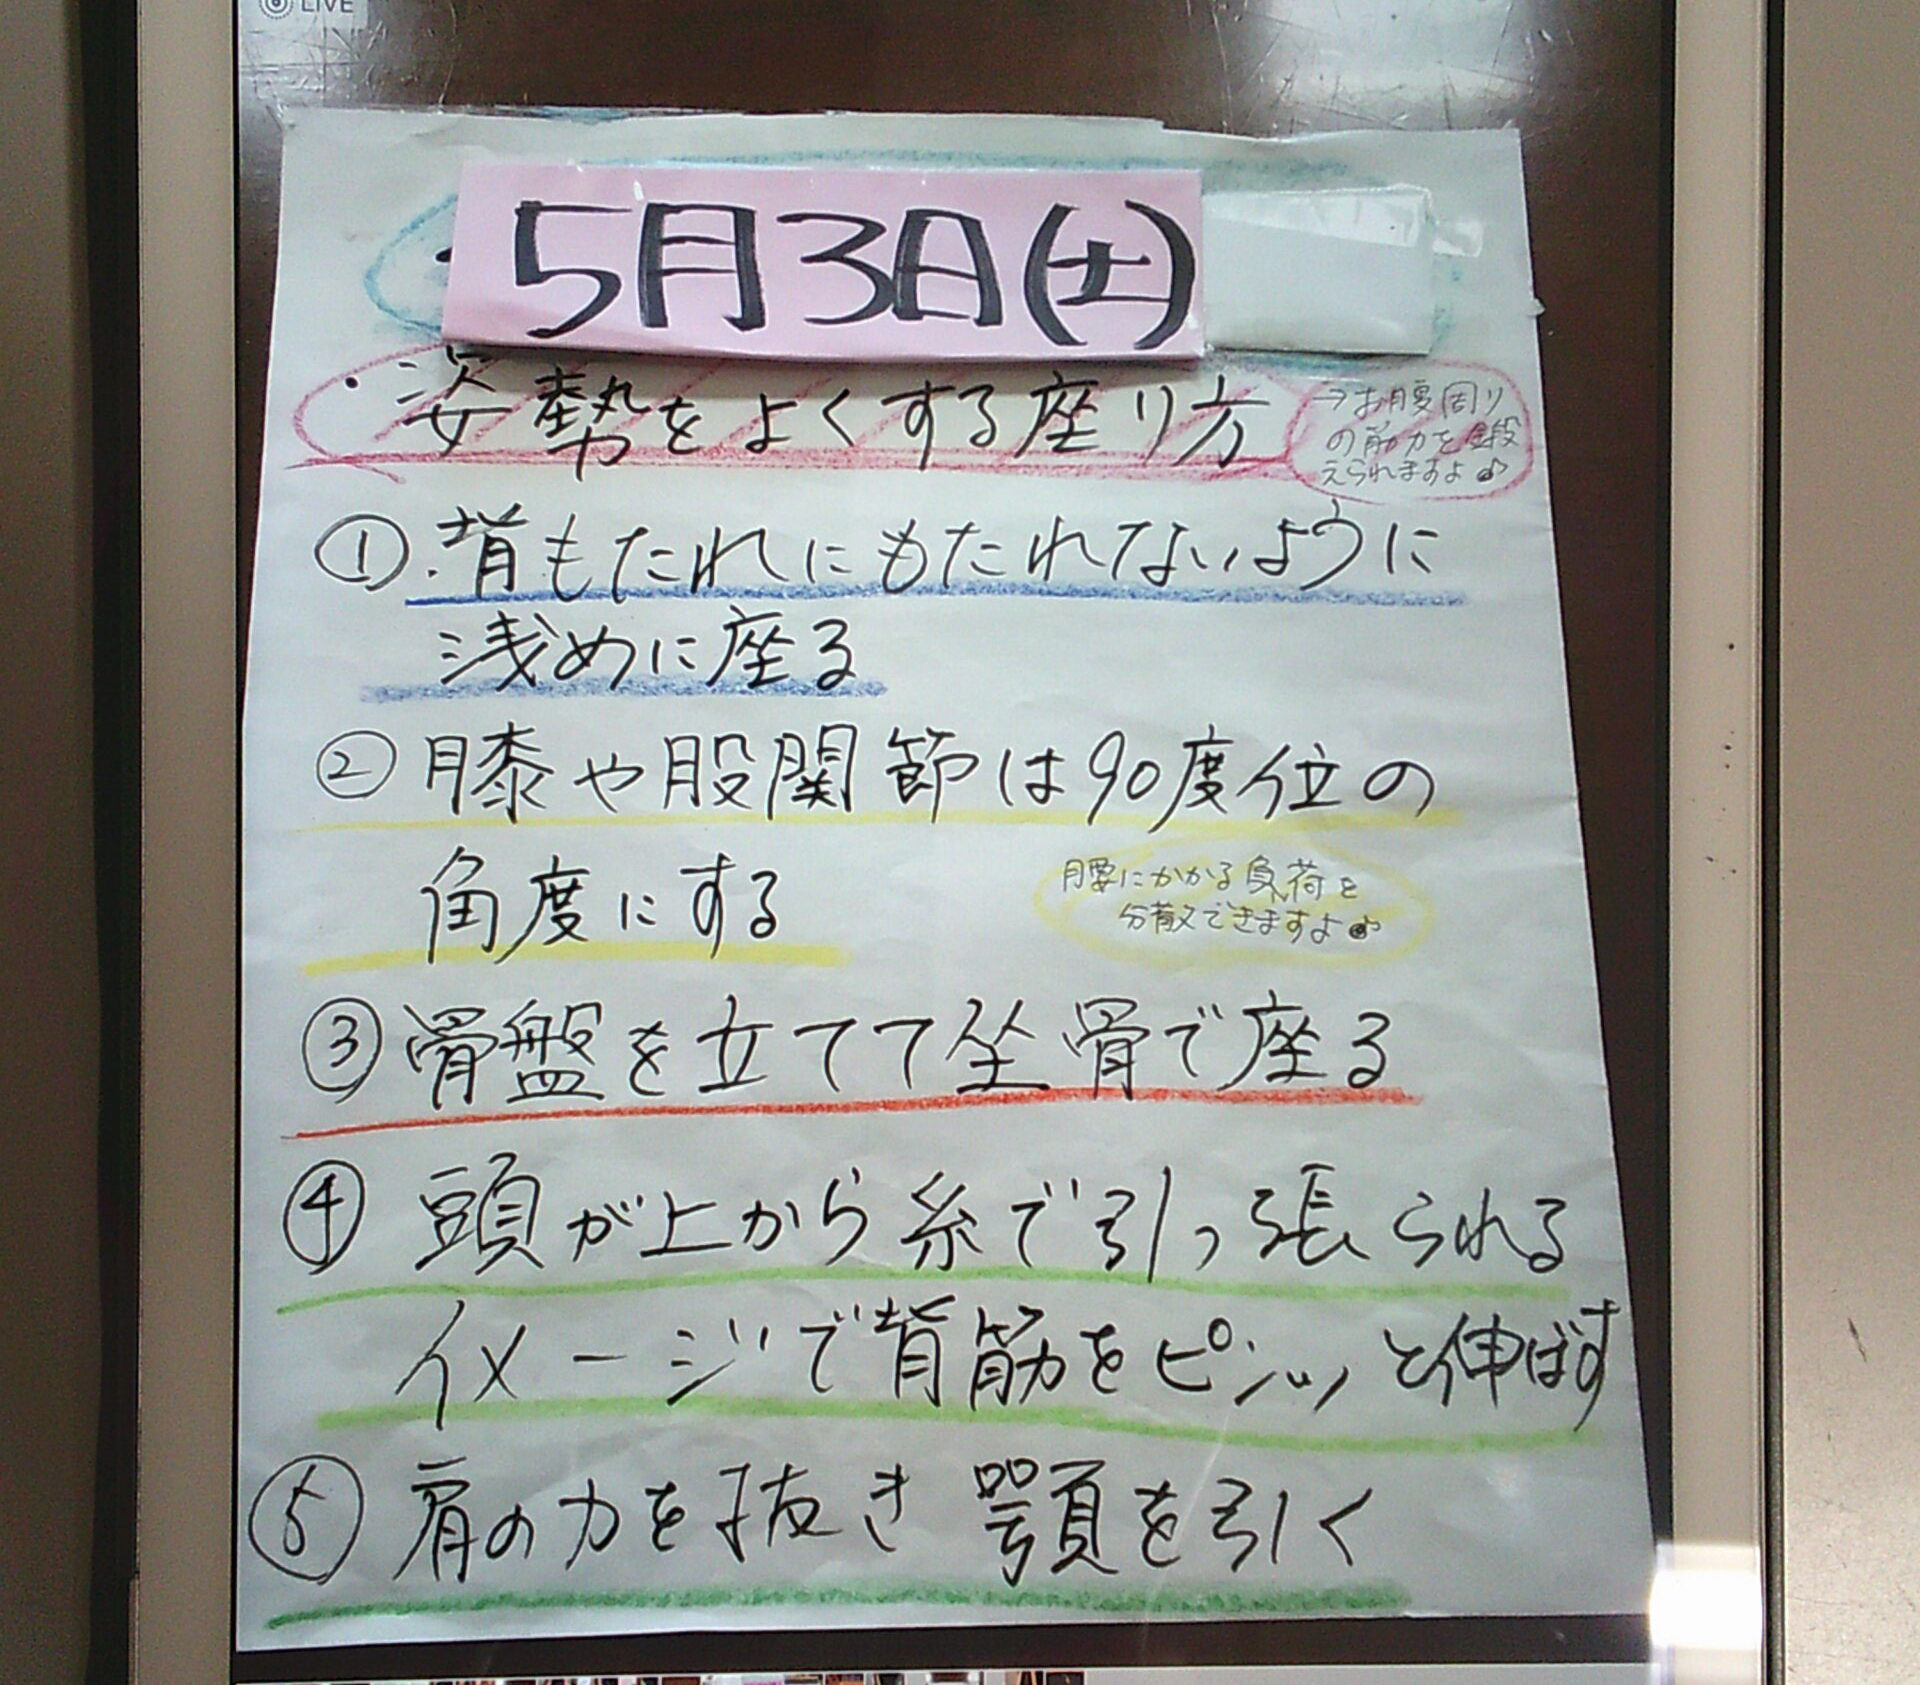 LIVE
5月3日(土)
・姿勢をよくする座り方
→お腹周り
の筋力を鍛
えられますよ♪
①.背もたれにもたれないように
浅めに座る
②膝や股関節は90度位の
角度にする
腰にかかる負荷を
分散できますよ♪
③骨盤を立てて坐骨で座る
④頭が上から糸で引っ張られる
イメージで背筋をピンッと伸ばす
⑤肩の力を抜き顎を引く